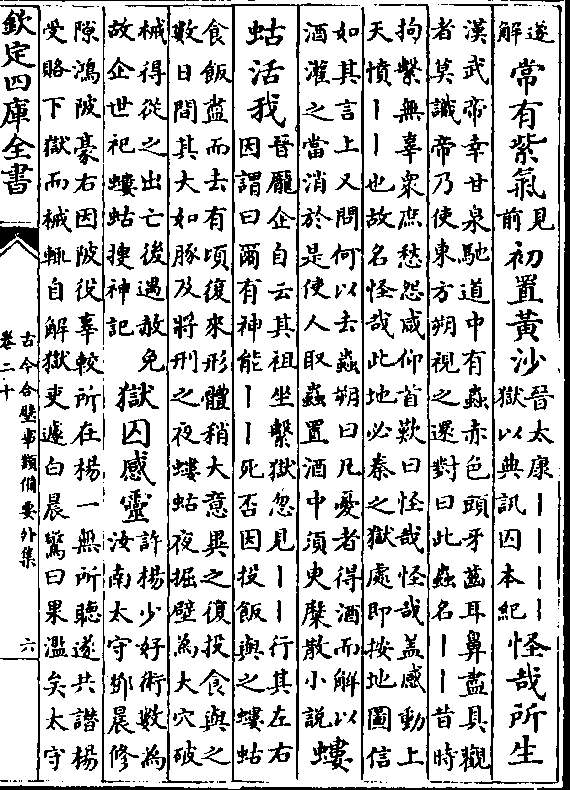 遂解常有紫氣見前初置黃沙晉太康丨丨丨丨獄以典訊囚本紀怪哉所生
漢武帝幸甘泉馳道中有蟲赤色頭牙齒耳鼻盡具觀
者莫識帝乃使東方朔視之還對曰此蟲名丨丨昔時
拘繫無辜衆庶愁怨咸仰首歎曰怪哉怪哉蓋感動上
天憤丨丨也故名怪哉此地必秦之獄處即按地圖信
如其言上又問何以去蟲朔曰凡憂者得酒而解以
酒灌之當消於是使人取蟲置酒中須臾糜散小說螻
蛄活我晉龐企自云其祖坐繫獄忽見丨丨行其左右
因謂曰爾有神能丨丨死否因投飯與之螻蛄
食飯盡而去有頃復來形體稍大意異之復投食與之
數日間其大如豚及將刑之夜螻蛄夜掘壁為大穴破
械得從之出亡後遇赦免
故企世祀螻蛄搜神記獄囚感靈許楊少好術數為
汝南太守鄧晨修
隙鴻陂豪右因陂役辜較所在楊一無所聽遂共譖楊
受賂下獄而械輒自解獄吏遽白晨驚曰果濫矣太守
欽定四庫全書
古今合璧事類備要外集
卷二十
六